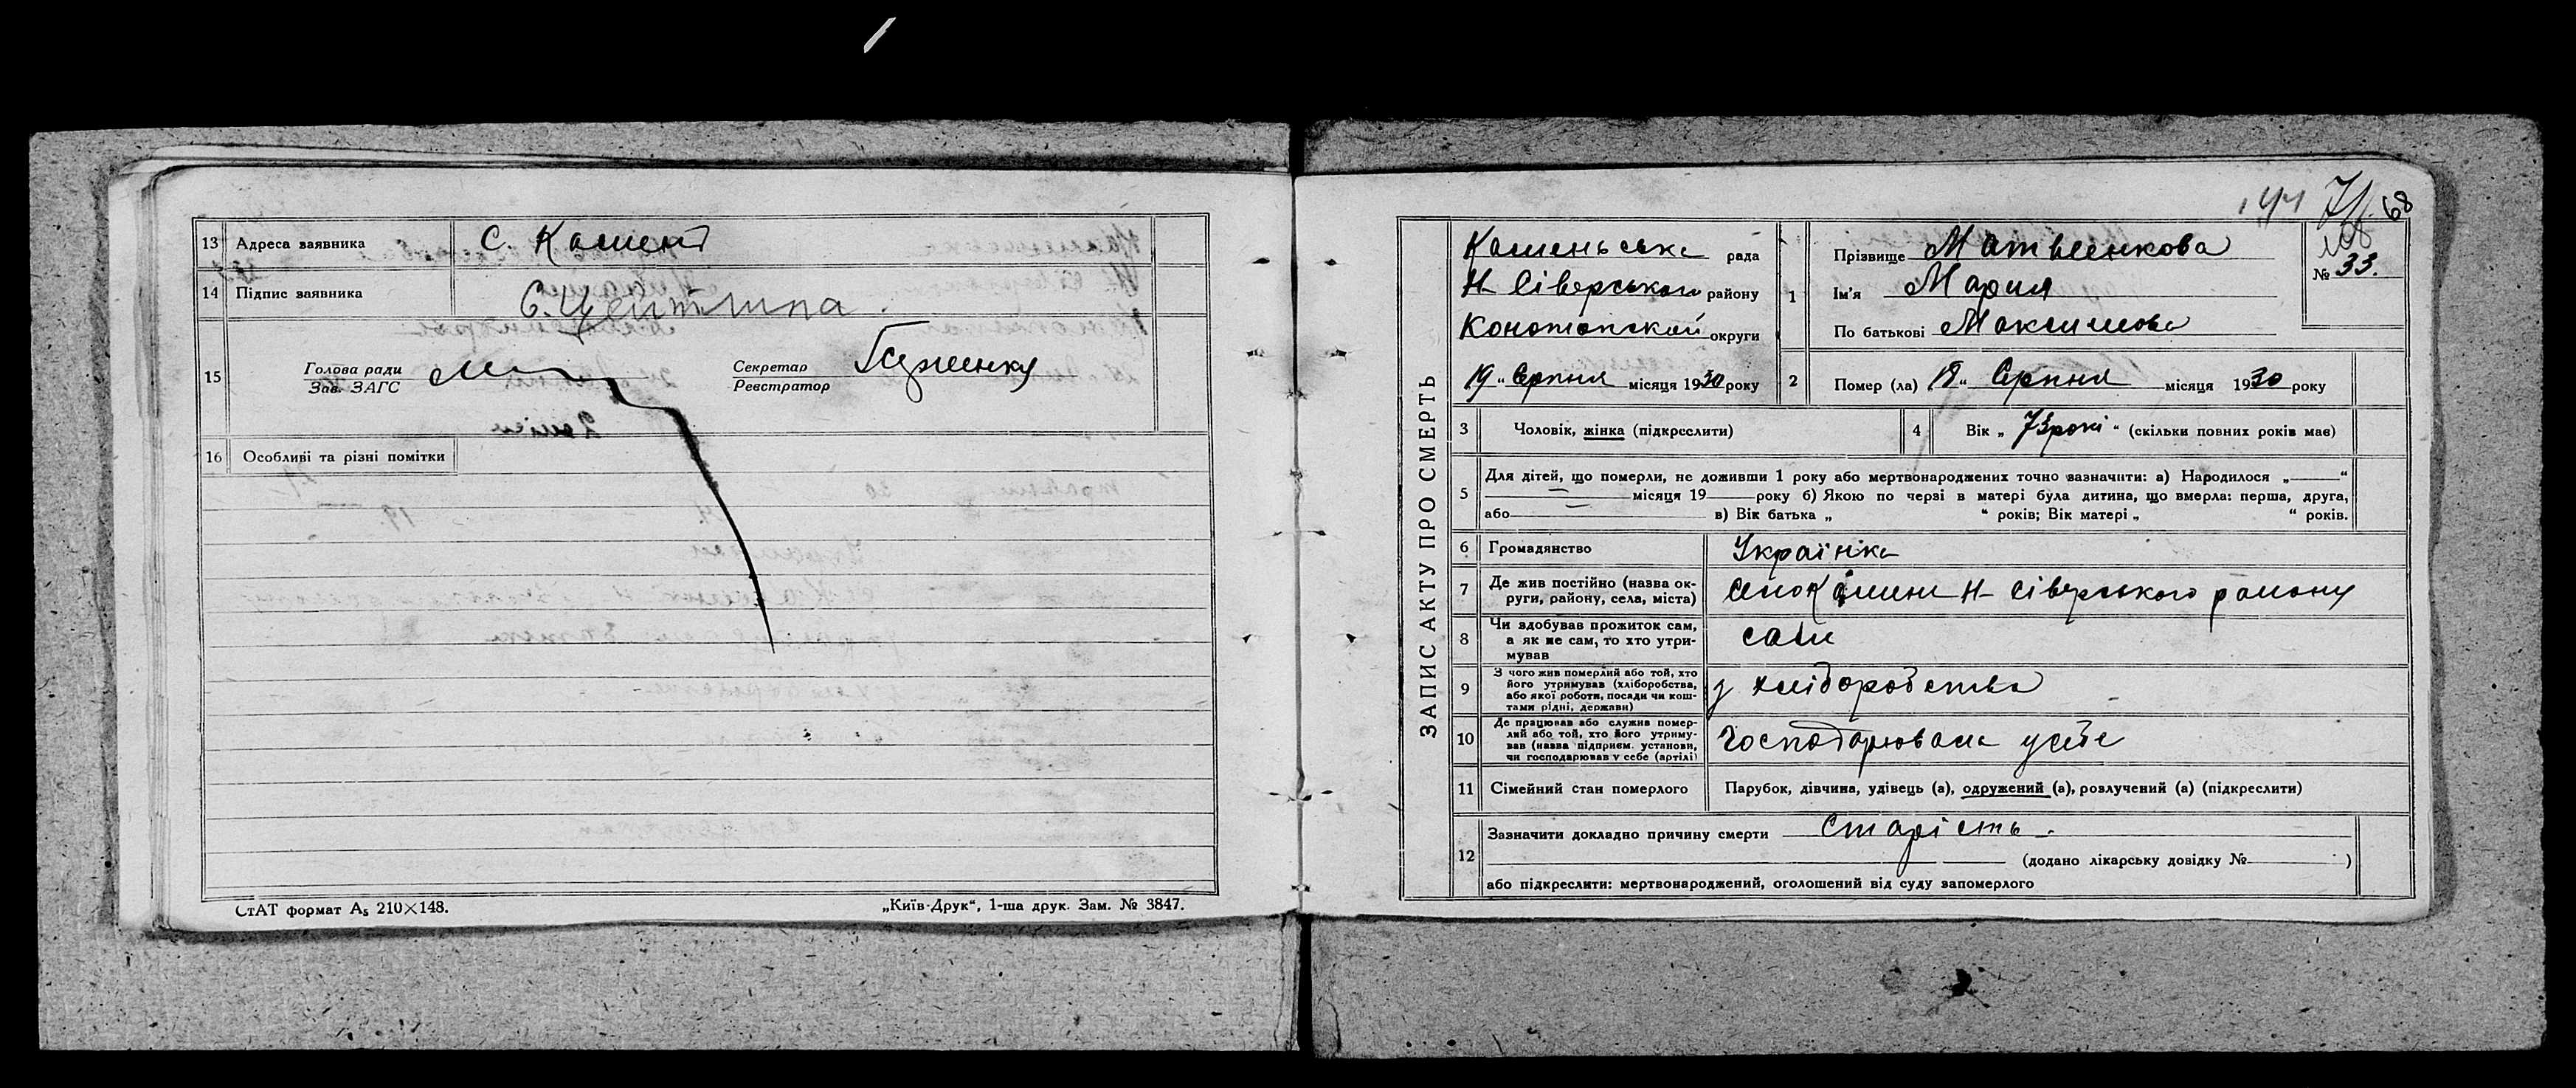 13 Адреса заявника С. Камень
14 Підпис заявника С. Цейтлина.
15 Голова ради
Зав. ЗАГС
Секретар
Реєстратор
16 Особливі та різні помітки
СтАТ формат А₅ 210×148.
„Київ-Друк“, 1-ша друк. Зам. № 3847.
68
ЗАПИС АКТУ ПРО СМЕРТЬ
Каменьська рада
Н-Сіверського району
Конотопской округи
19 „ Серпня місяця 1930 року
1 Прізвище Матвеенкова
Ім'я Мария
По батькові Максимова
№ 33.
2 Помер (ла) 18 “ Серпня місяця 1930 року
3 Чоловік, жінка (підкреслити)
4 Вік „ 73 рокі “ (скільки повних років має)
5 Для дітей, що померли, не доживши 1 року або мертвонароджених точно зазначити: а) Народилося „ “
місяця 19 року б) Якою по черзі в матері була дитина, що вмерла: перша, друга,
або в) Вік батька „ “ років; Вік матері „ “ років.
6 Громадянство Українка
7 Де жив постійно (назва ок-
руги, району, села, міста) Н-Сіверського району
8 Чи здобував прожиток сам,
а як не сам, то хто утри-
мував
сама
9 З чого жив померлий або той, хто
його утримував (хліборобства,
або якої роботи, посади чи кош-
тами рідні, держави)
з хліборобства
10 Де працював або служив помер-
лий або той, хто його утриму-
вав (назва підприєм. установи,
чи господарював у себе (артілі)
Господарювала у себе
11 Сімейний стан померлого Парубок, дівчина, удівець (а), одружений (а), розлучений (а) (підкреслити)
12 Зазначити докладно причину смерти Старість.
(додано лікарську довідку № )
або підкреслити: мертвонароджений, оголошений від суду запомерлого